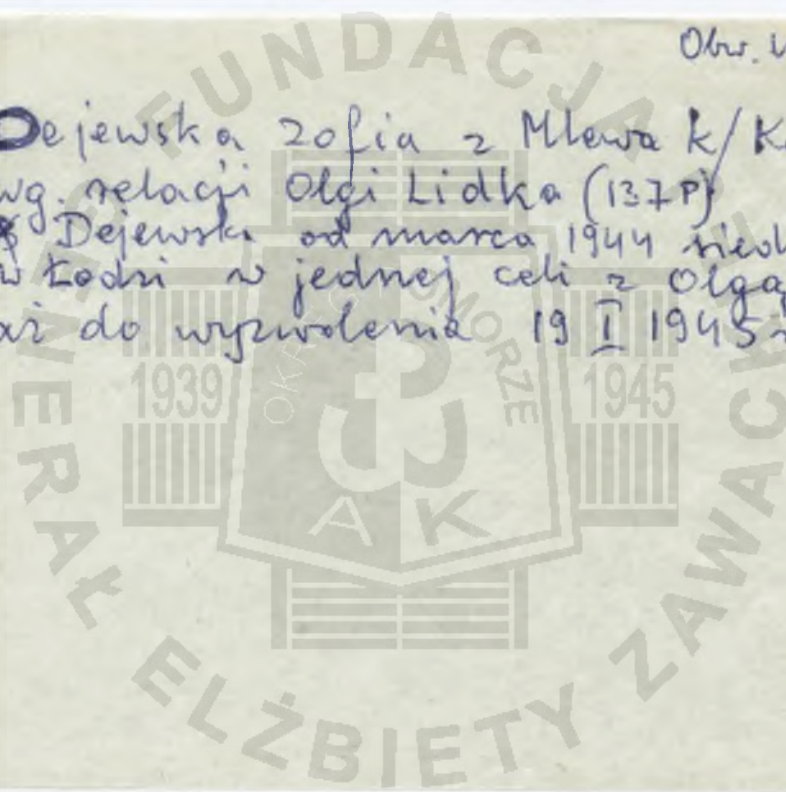 Obw. W
Dejewska Zofia z Mlewa k/K
wg. relacji Olgi Lidka (137P)
Dejewska od marca 1944 sied
w Łodzi w jednej celi z Olgą
aż do wyzwolenia 19 I 1945 r
FUNDACJA
GENERAŁ ELŻBIETY ZAWACK
OKRĘG POMORZE
1939 1945
AK